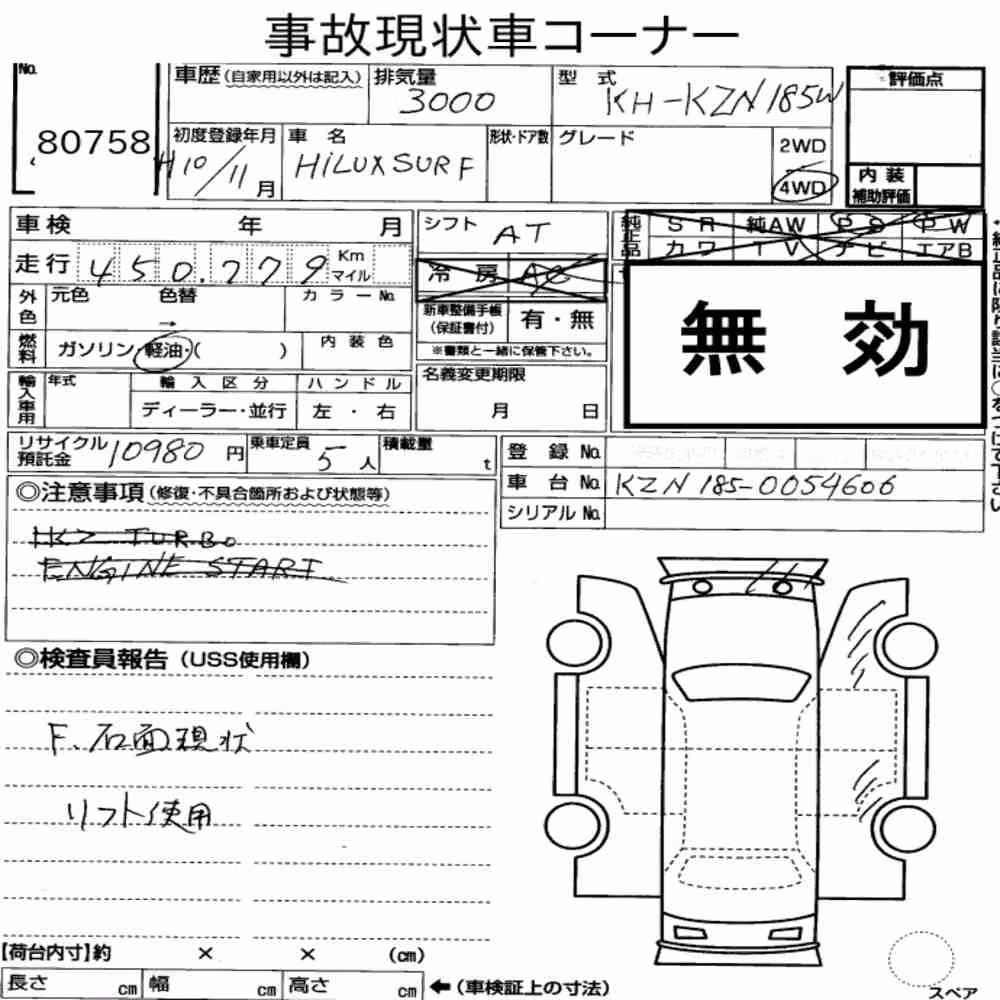 事故現状車コーナー
No. 80758
車歴(自家用以外は記入)
排気量 3000
型式 KH-KZN185W
評価点
初度登録年月 H10/11月
車名 HiLUXSURF
形状・ドア数
グレード
2WD
4WD
内装
補助評価
車検 年 月
シフト AT
純正品
SR 純AW PS PW
カワ TV ナビ エアB
走行 450.779 Km マイル
冷房 AC
無効
外色 元色 色替 → カラーNo.
新車整備手帳(保証書付) 有・無
※書類と一緒に保管下さい。
燃料 ガソリン・軽油・( )
内装色
輸入車用 年式 輸入区分 ハンドル
ディーラー・並行 左・右
名義変更期限
月 日
リサイクル預託金 10980円
乗車定員 5人
積載量 t
登録No.
車台No. KZN185-0054606
シリアルNo.
◎注意事項(修復・不具合箇所および状態等)
1KZ TURBO
ENGINE START
◎検査員報告(USS使用欄)
F.右面現状
リフト使用
【荷台内寸】約 × × (cm)
長さ cm 幅 cm 高さ cm ←(車検証上の寸法)
スペア